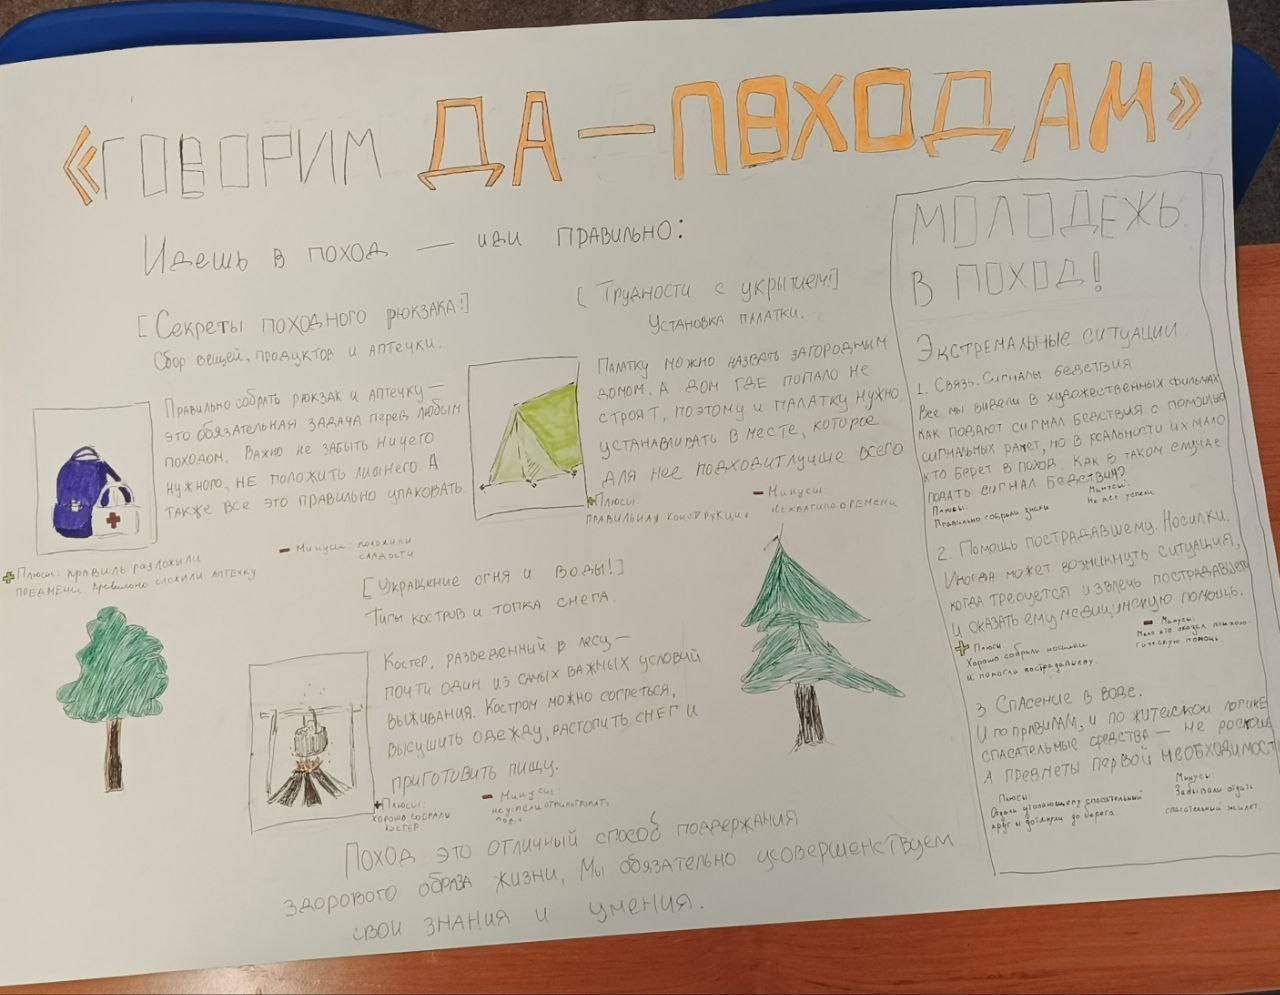 «ГОВОРИМ ДА — ПОХОДАМ»
Идешь в поход — иди правильно:
[Секреты походного рюкзака!]
Сбор вещей, продуктов и аптечки.
Правильно собрать рюкзак и аптечку —
это обязательная задача перед любым
походом. Важно не забыть ничего
нужного, не положить лишнего. А
также все это правильно упаковать.
+ Плюсы: правиль разложили
предмены. правильно сложили аптечку
- Минусы: положили
сладости
[Трудности с укрытием!]
Установка палатки.
Палатку можно назвать загородным
домом. А дом где попало не
строят, поэтому и палатку нужно
устанавливать в месте, которое
для нее подходит лучше всего
+ Плюсы
правильная конструкция
- Минусы
не хватило времени
[Укращение огня и воды!]
Типы костров и топка снега.
Костер, разведенный в лесу —
почти один из самых важных условий
выживания. Костром можно согреться,
высушить одежду, растопить снег и
приготовить пищу.
+ Плюсы:
хорошо собрали
костёр
- Минусы:
не успели
Поход это отличный способ поддержания
здорового образа жизни. Мы обязательно усовершенствуем
свои знания и умения.
МОЛОДЕЖЬ
В ПОХОД!
Экстремальные ситуации.
1. Связь. Сигналы бедствия
Все мы видели в художественных фильмах
как подают сигнал бедствия с помощью
сигнальных ракет, но в реальности их мало
кто берет в поход. Как в таком случае
подать сигнал бедствия?
Плюсы:
Правильно собрали знаки
Минусы:
Не все успели
2. Помощь пострадавшему. Носилки.
Иногда может возникнуть ситуация,
когда требуется извлечь пострадавшего
и оказать ему медицинскую помощь.
+ Плюсы
Хорошо собрали носилки
и помогли пострадавшему
- Минусы:
Мало кто оказал психоло-
гическую помощь
3 Спасение в воде.
И по правилам, и по житейской логике
спасательные средства — не роскош
а предметы первой необходимост
Плюсы:
Отдали утопающему спасательный
круг и дотянули до берега.
Минусы
Забывали отдать
спасательный жилет